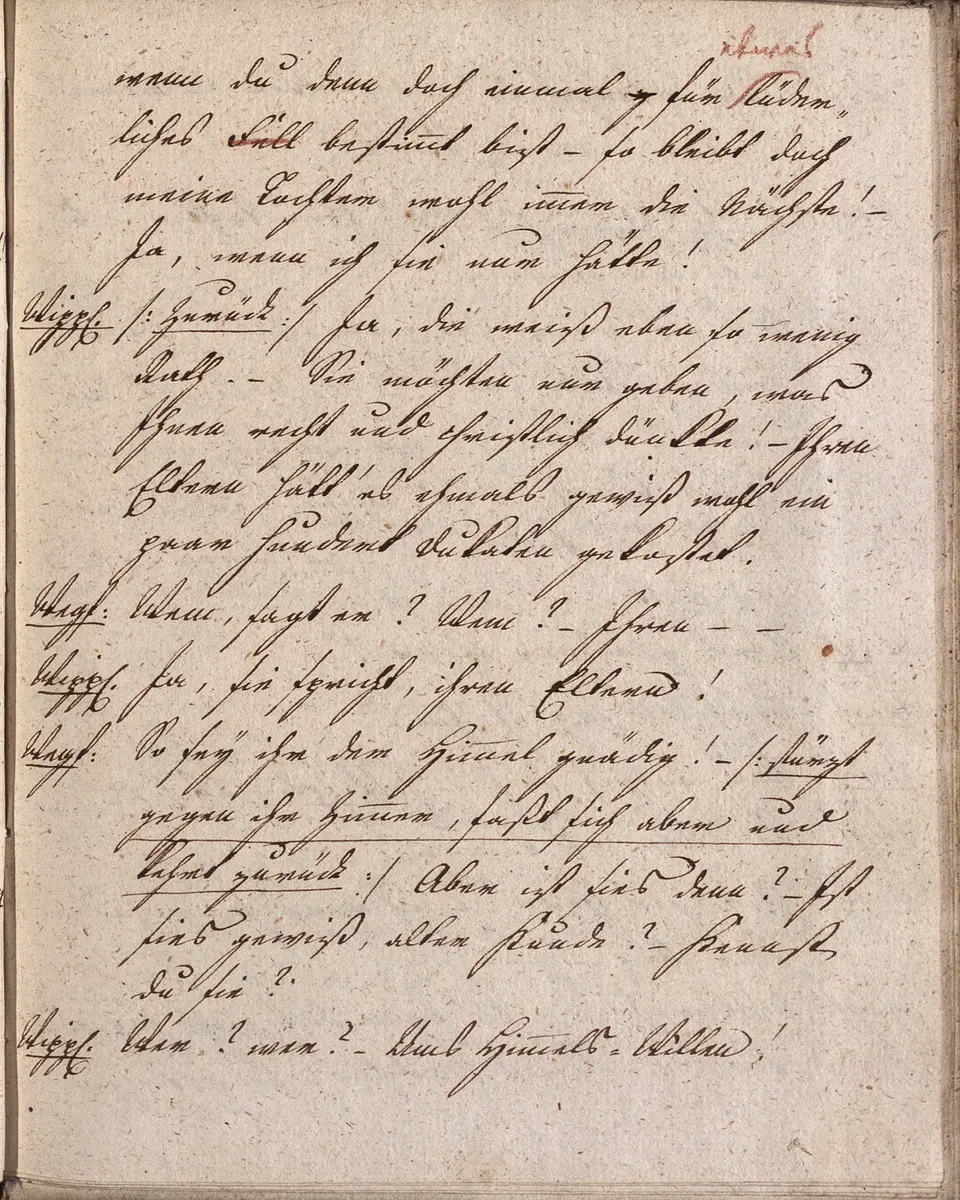 etwas
wenn du denn doch einmal für lüder„
liches Fell bestim̅t bist – so bleibt doch
meine Tochter wohl im̅er die Nächste! –
Ja, wenn ich sie nur hätte!
Wippf. /: zurück :/ Ja, die weiß eben so wenig
Rath. – Sie möchten nur geben, was
Ihnen recht und christlich dünkte! – Ihren
Eltern hätt' es ehmals gewiß wohl ein
paar hundert Dukaten gekostet.
Wegf: Wem, sagt er? Wem? – Ihren – –
Wippf. Ja, sie spricht, ihren Eltern!
Wegf: So sey ihr der Him̅el gnädig! – /: stürzt
gegen ihr Zim̅er, faßt sich aber und
kehrt zurück :/ Aber ist sies denn? – Ist
sies gewiß, alter Kunde? – Kennst
du sie?
Wippf. Wer? wer? – Ums Him̅els-Willen!